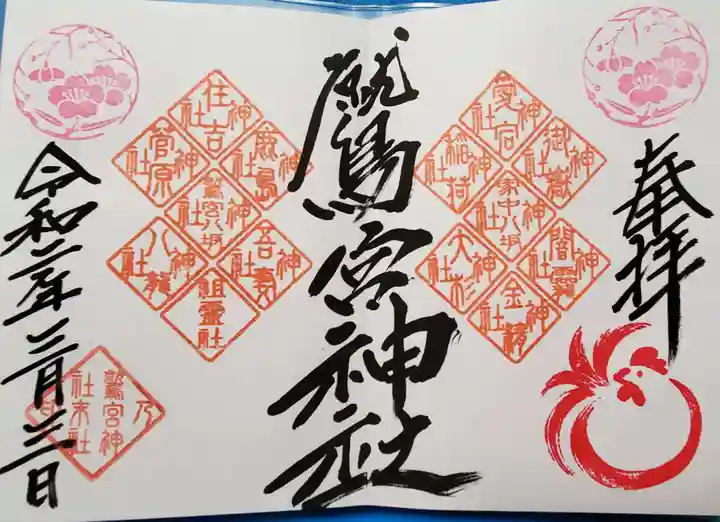 奉拝
愛宕神社
御嶽神社
稲荷神社
家中八坂神社
闇靇神社
大杉神社
金精神社
鷲宮神社
住吉神社
鹿島神社
菅原神社
鷲宮八坂神社
吾妻神社
八龍神社
祖霊社
令和二年三月三日
鷲宮神社末社乃印